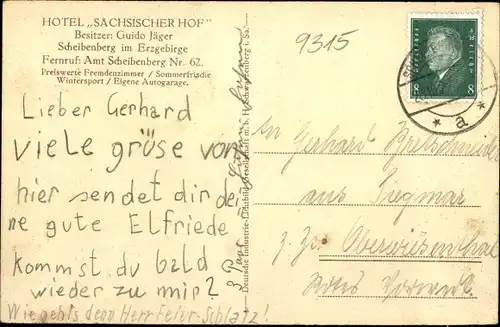 HOTEL „SÄCHSISCHER HOF"
Besitzer: Guido Jäger
Scheibenberg im Erzgebirge
Fernruf: Amt Scheibenberg Nr. 62.
Preiswerte Fremdenzimmer / Sommerfrische
Wintersport / Eigene Autogarage.
9315
8 8
* a *
Lieber Gerhard
viele grüse von
hier sendet dir dei
ne gute Elfriede
kommst du bald
wieder zu mir?
Wie geht's denn Herr
Deutsche Industrie-Lichtbild-Gesellschaft m. b. H., Schwarzenberg i. Sa.
An Gerhard Bretschneider
aus Siegmar
z. Zt. Oberwiesenthal
Rotes Vorwerk